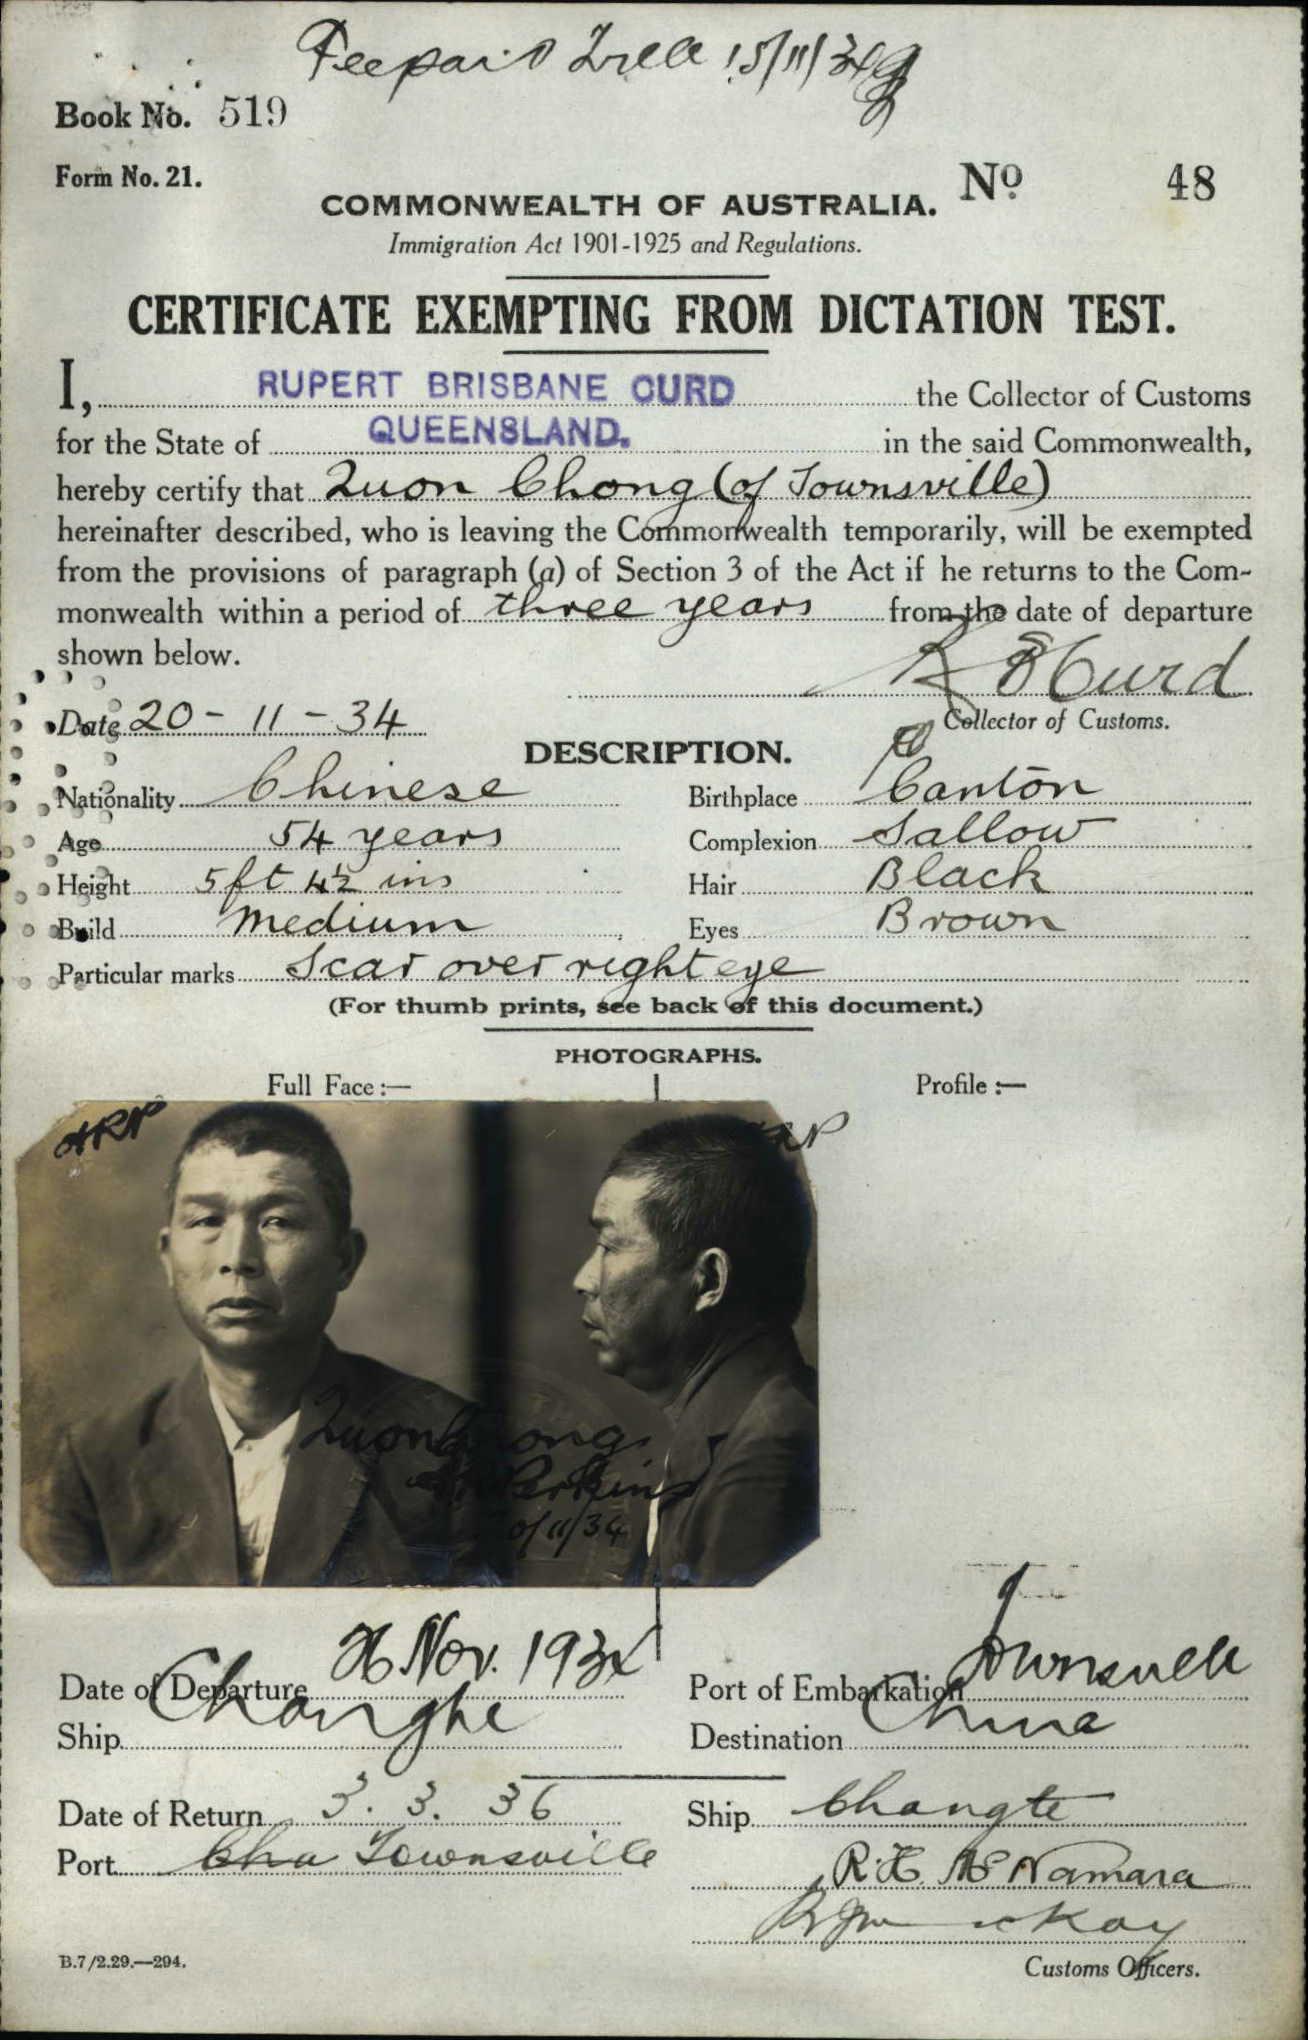 Feepaid 15/11/34
Book No. 519
Form No. 21.
No 48
COMMONWEALTH OF AUSTRALIA.
Immigration Act 1901-1925 and Regulations.
CERTIFICATE EXEMPTING FROM DICTATION TEST.
I, RUPERT BRISBANE CURD the Collector of Customs
for the State of QUEENSLAND. in the said Commonwealth,
hereby certify that Quon Chong (of Townsville)
hereinafter described, who is leaving the Commonwealth temporarily, will be exempted
from the provisions of paragraph (a) of Section 3 of the Act if he returns to the Com-
monwealth within a period of three years from the date of departure
shown below.
R B Curd
Date 20-11-34 Collector of Customs.
DESCRIPTION.
Nationality Chinese Birthplace Canton
Age 54 years Complexion Sallow
Height 5ft 4½ ins Hair Black
Build Medium Eyes Brown
Particular marks Scar over right eye
(For thumb prints, see back of this document.)
PHOTOGRAPHS.
Full Face:— Profile:—
HRP
Quon Chong
Perkins
/11/34
Date of Departure 26 Nov. 1934 Port of Embarkation Townsville
Ship Changte Destination China
Date of Return 3. 3. 36 Ship Changte
Port Cha Townsville
R. H. McNamara
Kay
B.7/2.29.—294.
Customs Officers.